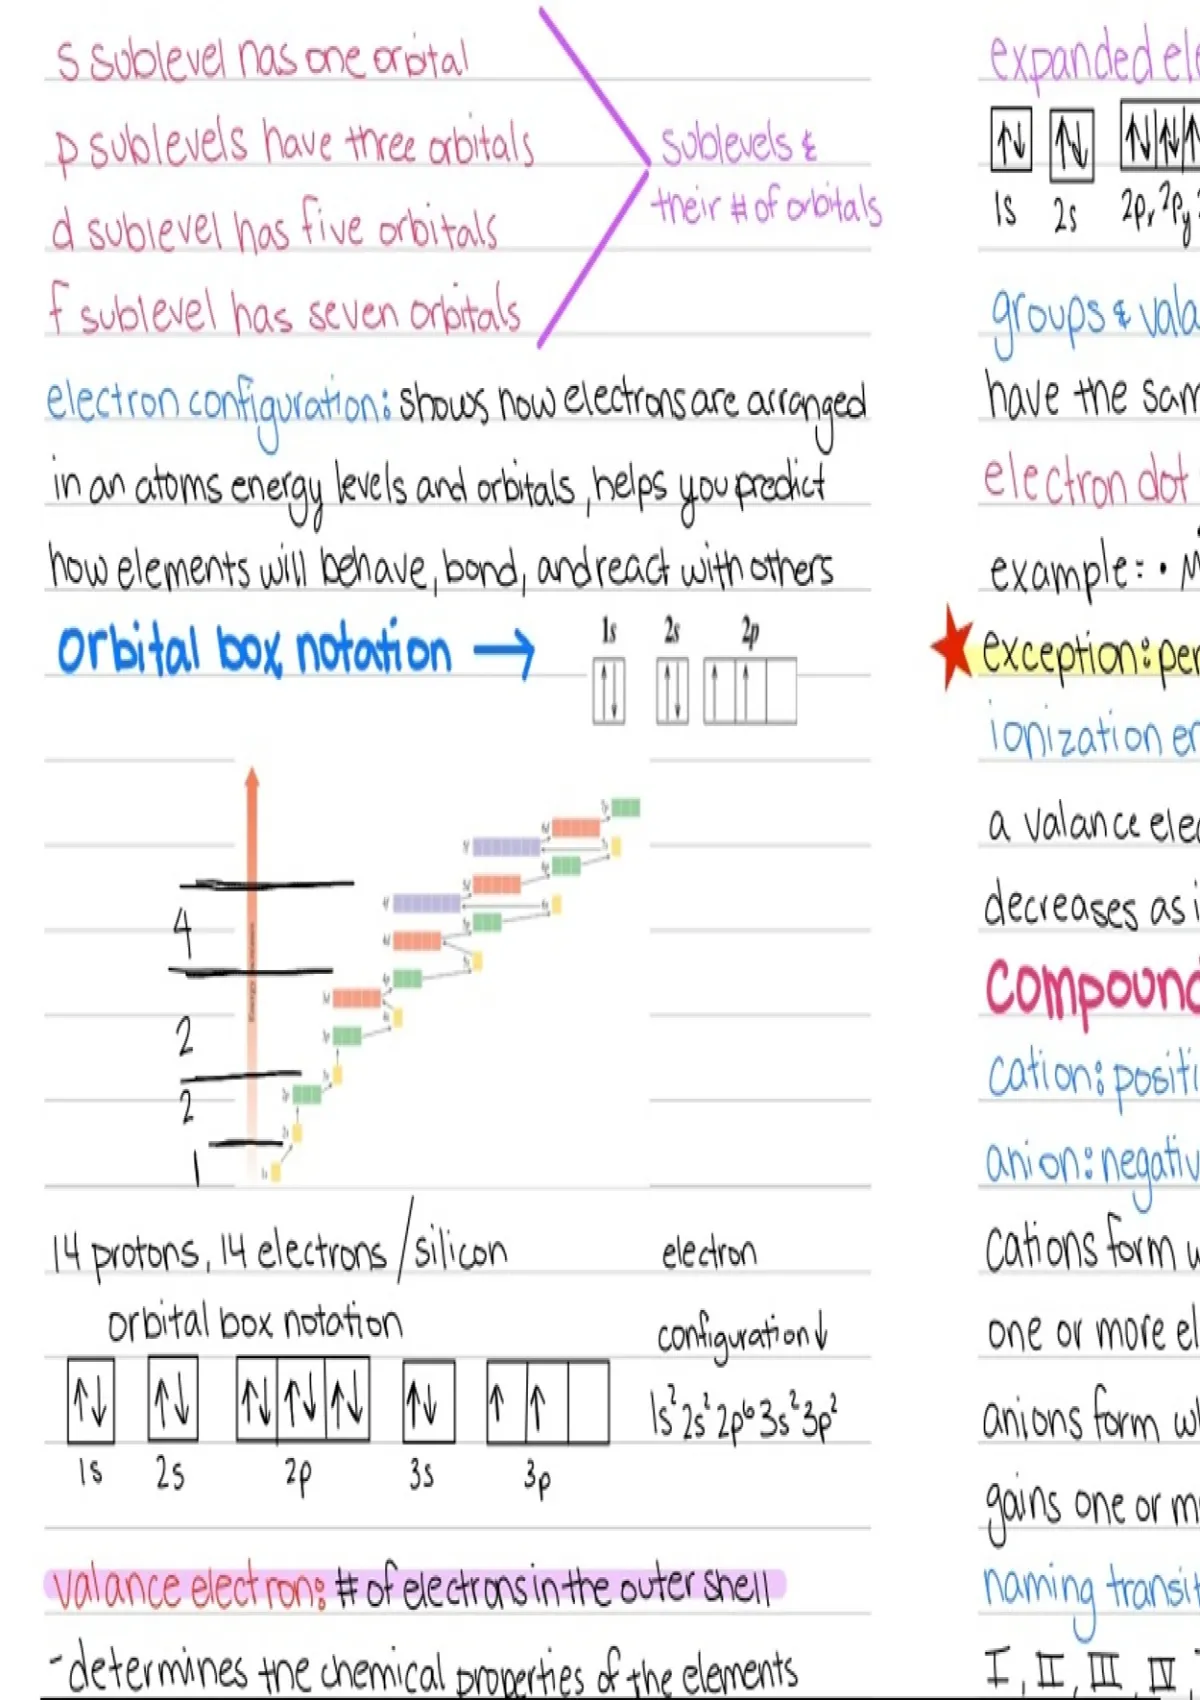 s sublevel has one orbital
p sublevels have three orbitals
d sublevel has five orbitals
f sublevel has seven orbitals
sublevels &
their # of orbitals
electron configuration: shows how electrons are arranged
in an atoms energy levels and orbitals, helps you predict
how elements will behave, bond, and react with others
orbital box notation →
1s 2s 2p
4
2
2
1
14 protons, 14 electrons / silicon
orbital box notation
1s 2s 2p 3s 3p
electron
configuration↓
1s² 2s² 2p⁶ 3s² 3p²
valance electron: # of electrons in the outer shell
-determines the chemical properties of the elements
expanded ele
1s 2s 2pₓ 2py
groups & vala
have the sam
electron dot
example: · M
exception: per
ionization en
a valance elec
decreases as i
compound
cation: positi
anion: negativ
cations form w
one or more el
anions form wh
gains one or mo
naming transit
I, II, III, IV,